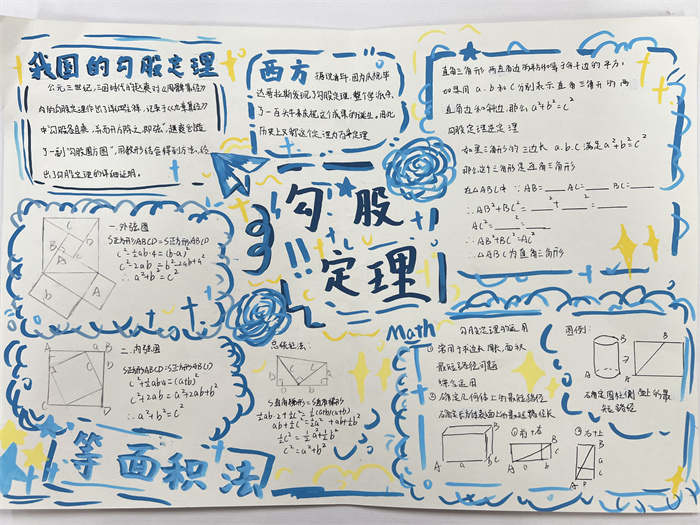 我国的勾股定理
公元三世纪,三国时代的赵爽对《周髀算经》
内的勾股定理作出了详细注释,记录于《九章算术》
中"勾股各自乘,并而开方除之,即弦",赵爽创造
了一副"勾股圆方图",用数形结合得到方法,给
出了勾股定理的详细证明。
西方
据说当年,因为反说毕
达哥拉斯发现了勾股定理,整个学派杀
了一百头牛来庆祝这个成果的诞生,因此
历史上又称这个定理为百牛定理
直角三角形两直角边的平方和等于斜边的平方,
如果用 a.b和c分别表示直角三角形的两
直角边和斜边,那么a²+b²=c²
勾股定理逆定理
如果三角形的三边长 a.b.c满足a²+b²=c²
那么这个三角形是直角三角形
在△ABC中 ∵ AB=___ AC=___ BC=___
∴AB²+BC²=___²+___²=___
AC²=___²=___
∴AB²+BC²=AC²
∴△ABC为直角三角形
勾股
定理
一.外弦图
S正方形ABCD=S正方形ABCD
c²-½ab·4=(b-a)²
c²-2ab=b²-2ab+a²
∴a²+b²=c²
二.内弦图
S正方形ABCD=S正方形ABCD
c²+½ab·4=(a+b)²
c²+2ab=a²+2ab+b²
∴a²+b²=c²
等面积法
总统证法:
S直角梯形=S直角梯形
½ab·2+½c²=½(a+b)(a+b)
ab+½c²=½a²+ab+½b²
½c²=½a²+½b²
c²=a²+b²
Math
勾股定理的应用
①常用于求边长,周长,面积
最短路径问题
综合应用
②确定几何体上的最短路径
确定长方体表面上的最短路线长
①前+右
②右+上
图例:
确定圆柱侧面上的最
短路径